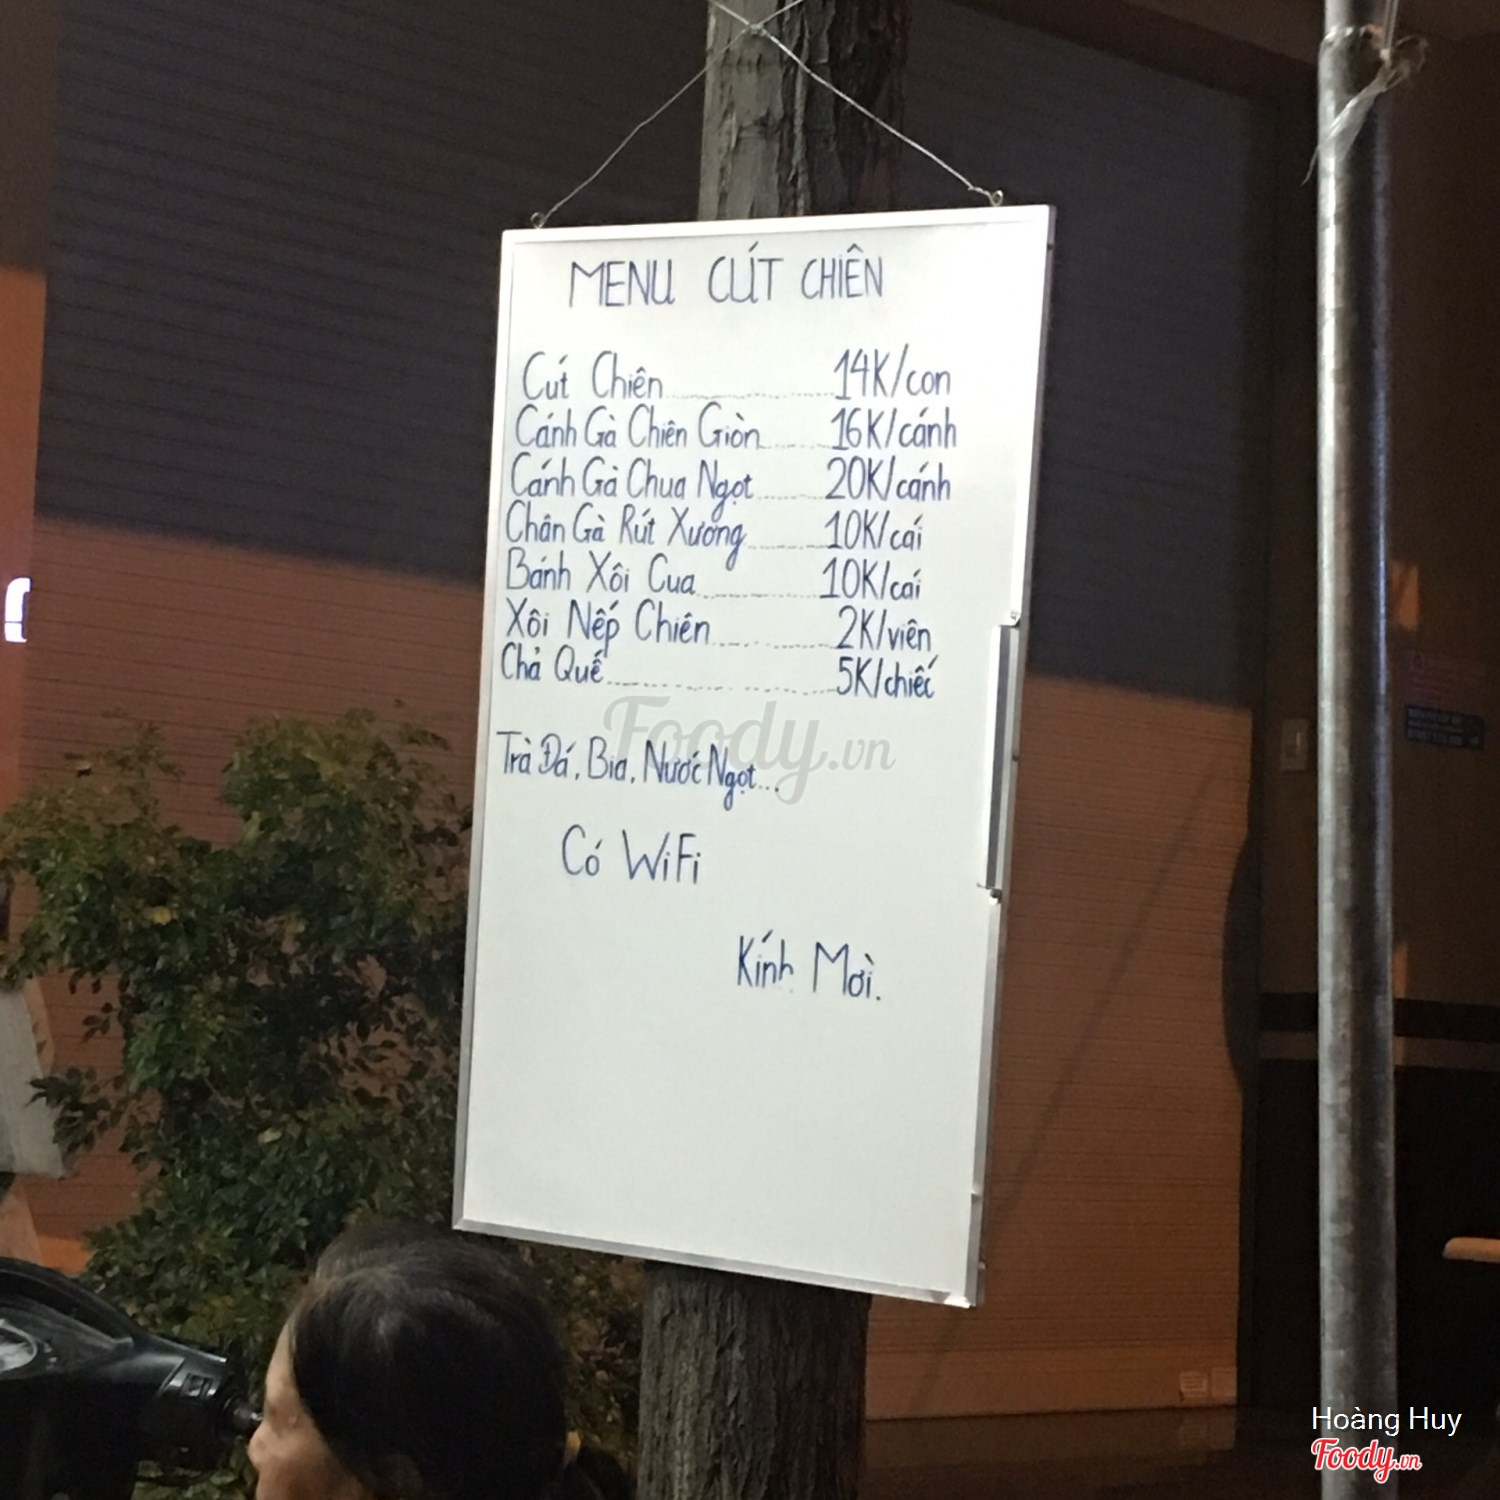 MENU CÚT CHIÊN
Cút Chiên 14K/con
Cánh Gà Chiên Giòn 16K/cánh
Cánh Gà Chua Ngọt 20K/cánh
Chân Gà Rút Xương 10K/cái
Bánh Xôi Cua 10K/cái
Xôi Nếp Chiên 2K/viên
Chả Quế 5K/chiếc
Foody.vn
Trà Đá, Bia, Nước Ngọt...
Có WiFi
Kính Mời.
Hoàng Huy
Foody.vn